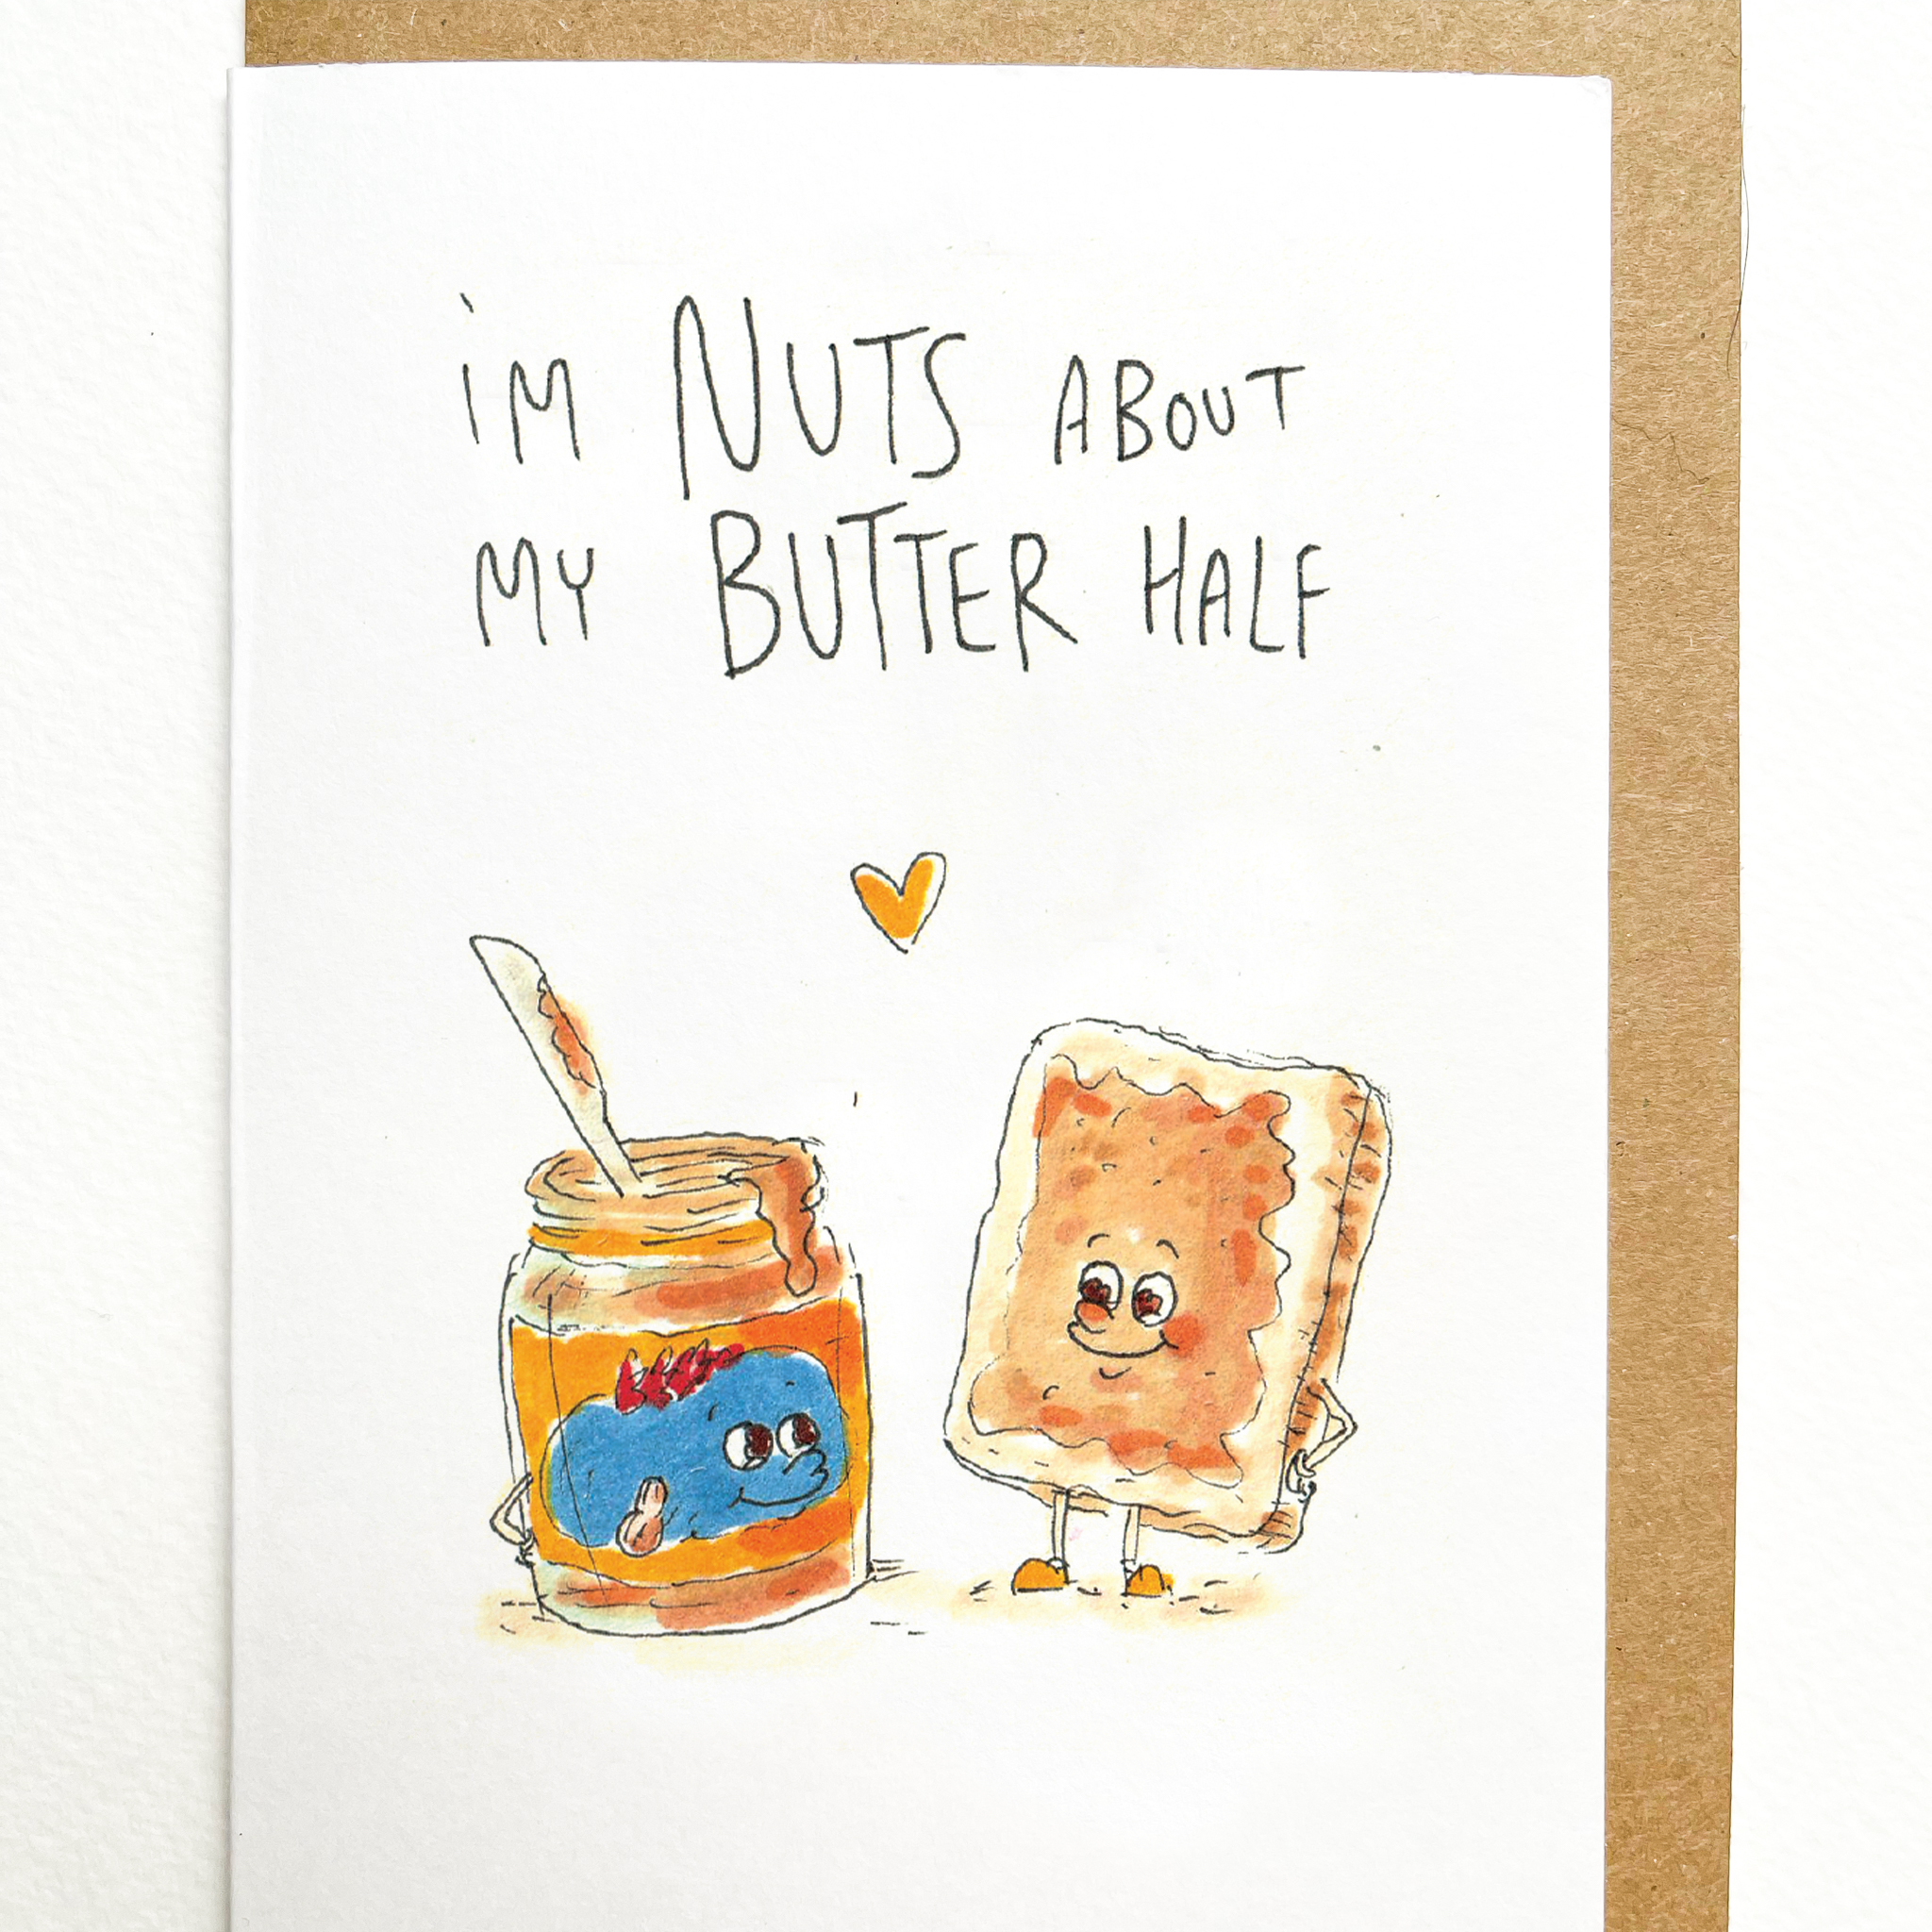 iM NUTS ABOUT
MY BUTTER HALF